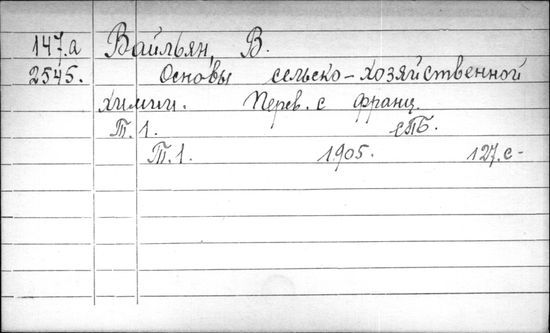 147.а Вайльян, В.
2545. Основы сельско-хозяйственной
химии. Перев. с франц.
Т. 1. СПБ.
Т. 1. 1905. 127. с-